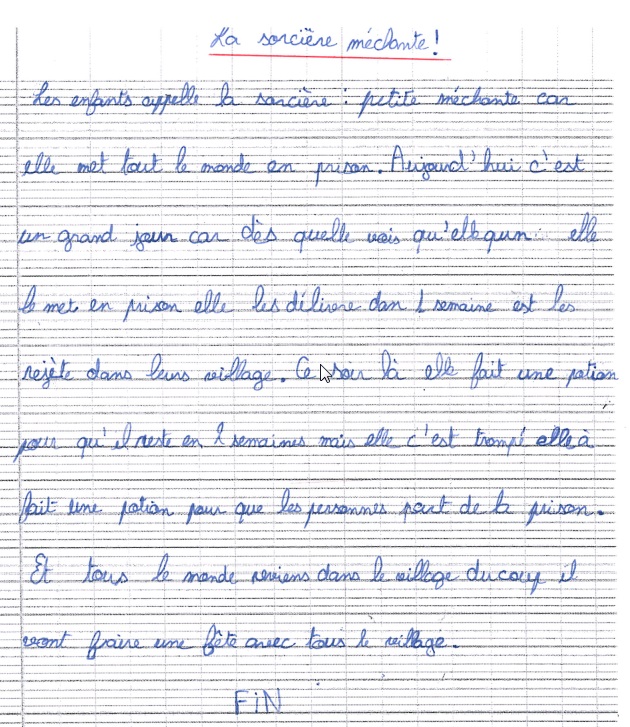 La sorcière méchante!
Les enfants appelle la sorcière : petite méchante car
elle met tout le monde en prison. Aujourd'hui c'est
un grand jour car dès quelle vois qu'elle qun elle
le met en prison elle les délivere dan 1 semaine est les
rejète dans leurs village. Ce soir là elle fait une potion
pour qu'il reste en 2 semaines mais elle c'est trompé elle à
fait une potion pour que les personnes part de la prison.
Et tous le monde reviens dans le village ducoup il
vont fraire une fête avec tous le village.
FiN